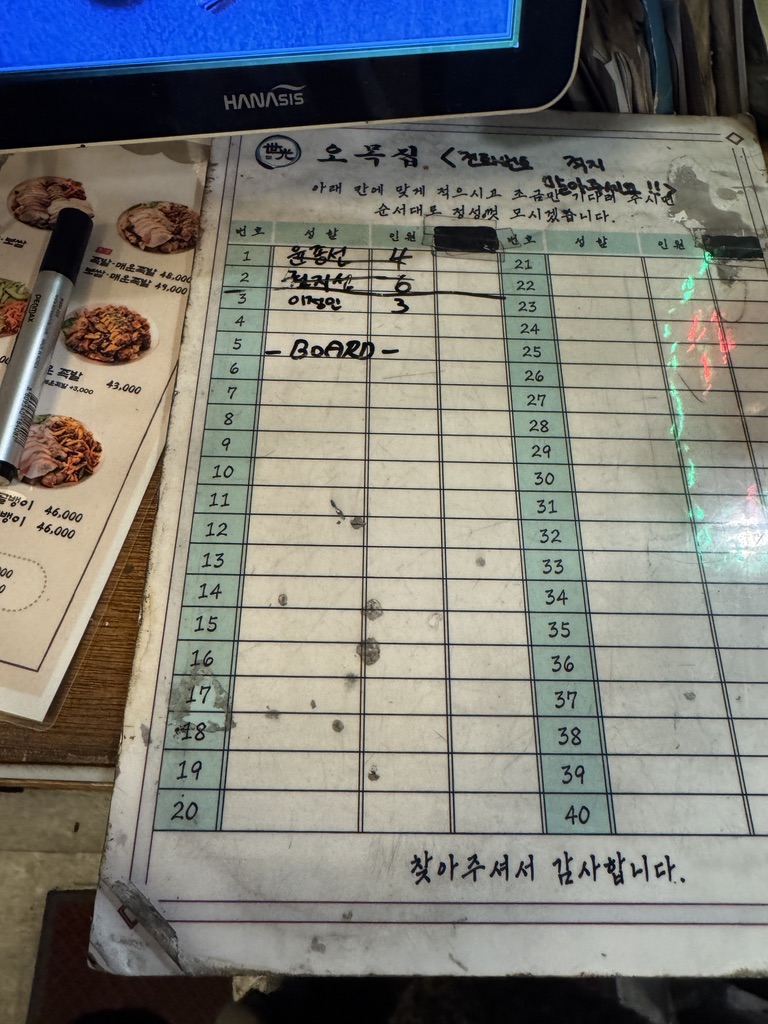 HANAsis
世光 오목집 <전화번호 적지
말아주세요 !!>
아래 칸에 맞게 적으시고 조금만 기다려 주시면
순서대로 정성껏 모시겠습니다.
번호 성함 인원 번호 성함 인원
1 4 21
2 6 22
3 이정민 3 23
4 24
5 - BOARD - 25
6 26
7 27
8 28
9 29
10 30
11 31
12 32
13 33
14 34
15 35
16 36
17 37
18 38
19 39
20 40
찾아주셔서 감사합니다.
족발·매운족발 48,000
보쌈·매운족발 49,000
족발 43,000
46,000
46,000